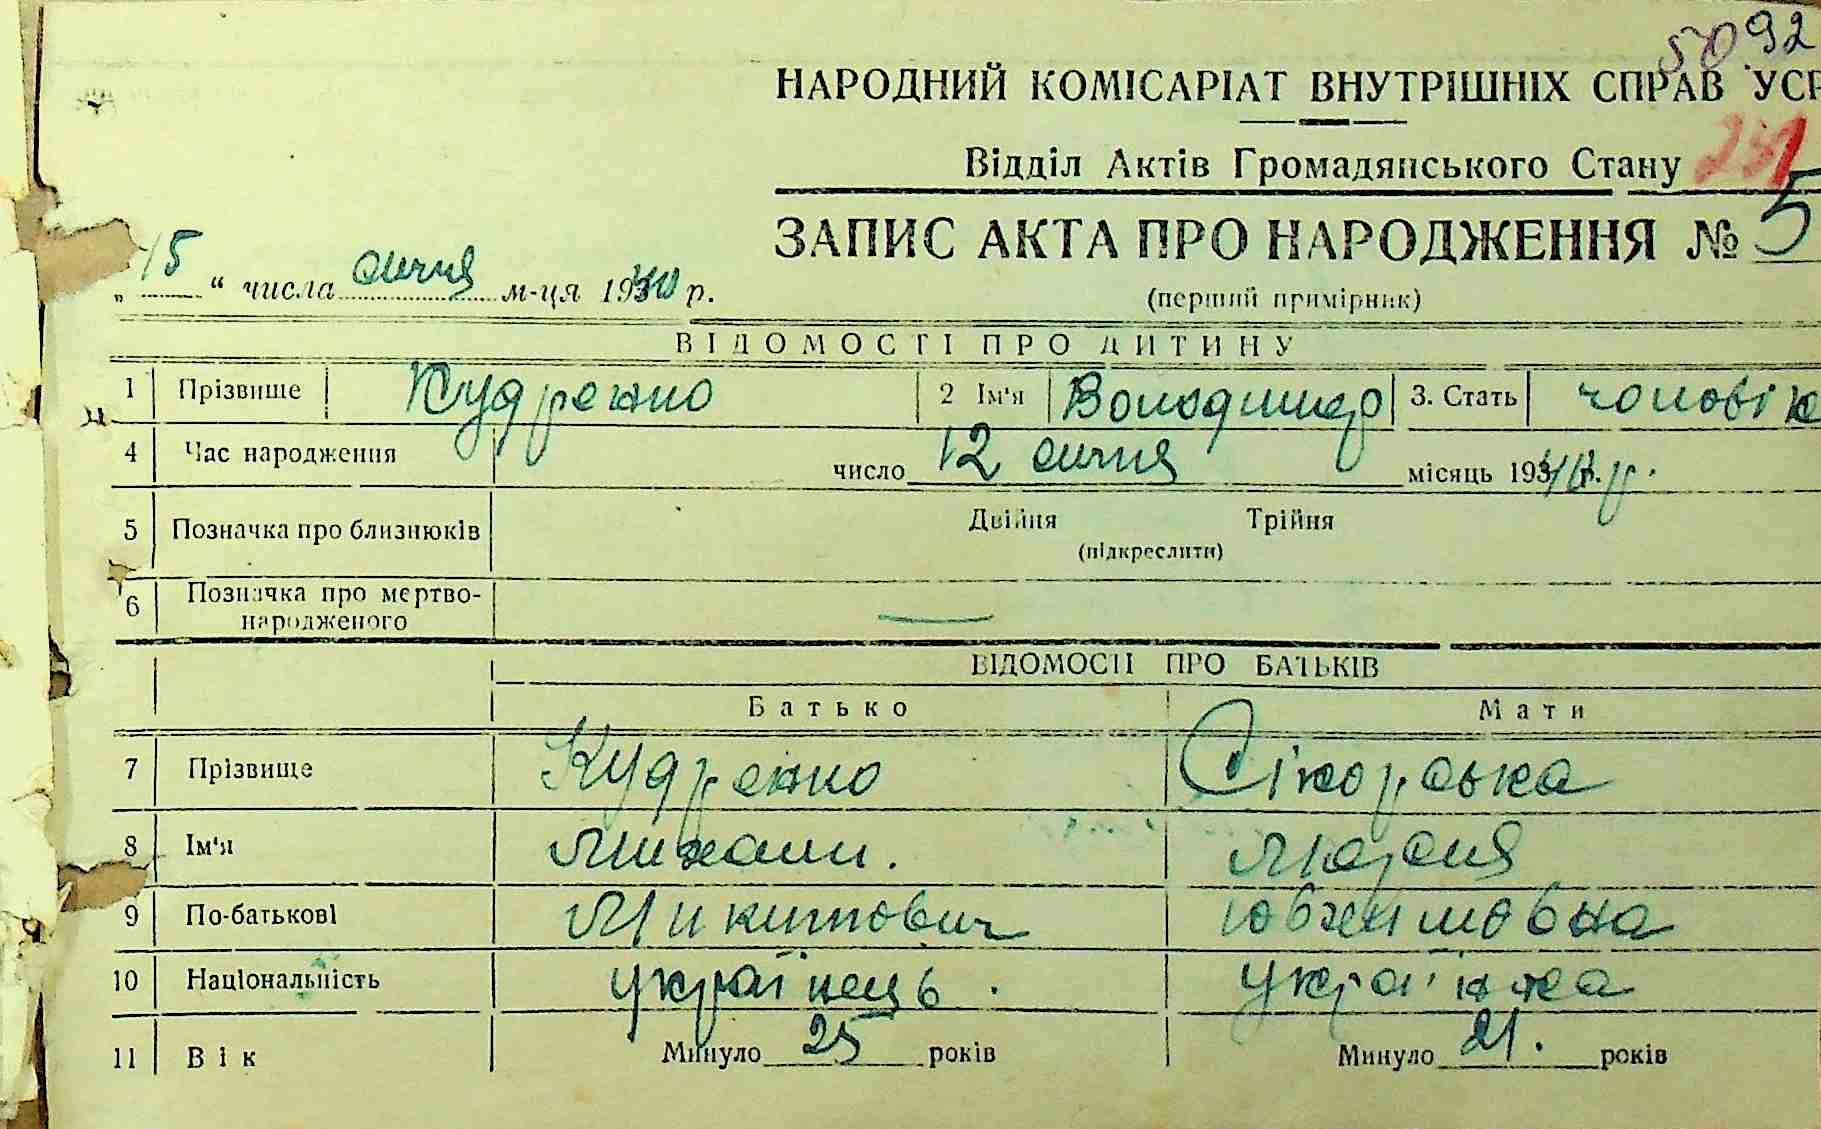 5092
НАРОДНИЙ КОМІСАРІАТ ВНУТРІШНІХ СПРАВ УСР
Відділ Актів Громадянського Стану
ЗАПИС АКТА ПРО НАРОДЖЕННЯ № 5
„15“ числа січня м-ця 1940 р.
(перший примірник)
ВІДОМОСТІ ПРО ДИТИНУ
1 Прізвище Кудренко 2 Ім'я Володимир 3. Стать чоловік
4 Час народження число 12 січня місяць 1940 р.
5 Позначка про близнюків Двійня Трійня
(підкреслити)
6 Позначка про мертво-
народженого —
ВІДОМОСТІ ПРО БАТЬКІВ
Батько Мати
7 Прізвище Кудренко Сікорська
8 Ім'я Михайло. Марія
9 По-батькові Микитович
10 Національність українець. українка
11 Вік Минуло 25 років Минуло 21. років